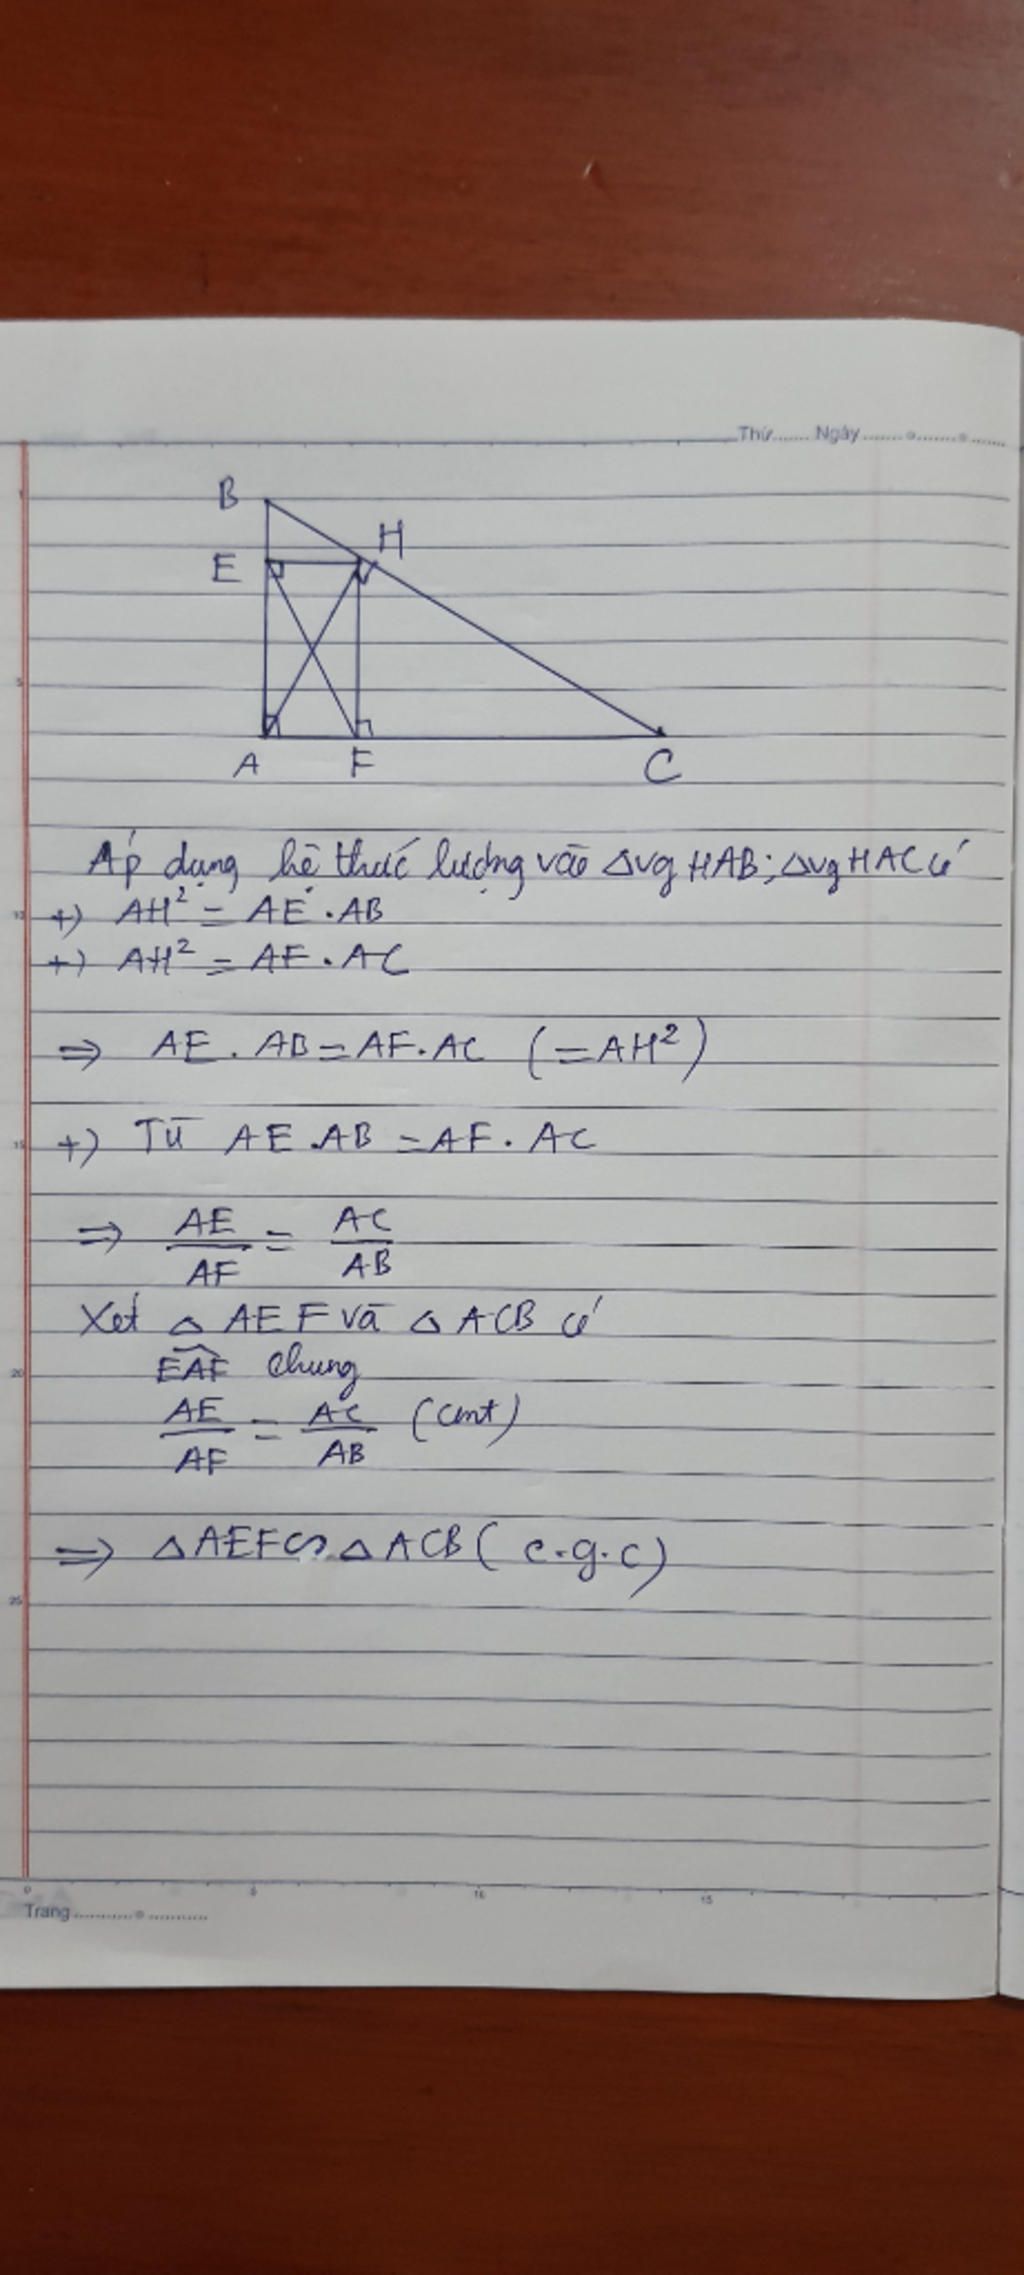 Thứ....... Ngày.................
B
H
E
A F C
Áp dụng hệ thức lượng vào Δvg HAB; Δvg HAC có
+) AH² = AE . AB
+) AH² = AF . AC
=> AE . AB = AF . AC (=AH²)
+) Từ AE . AB = AF . AC
=> AE/AF = AC/AB
Xét Δ AEF và Δ ACB có
EAF chung
AE/AF = AC/AB (cmt)
=> Δ AEF ∽ Δ ACB ( c.g.c)
Trang.......................